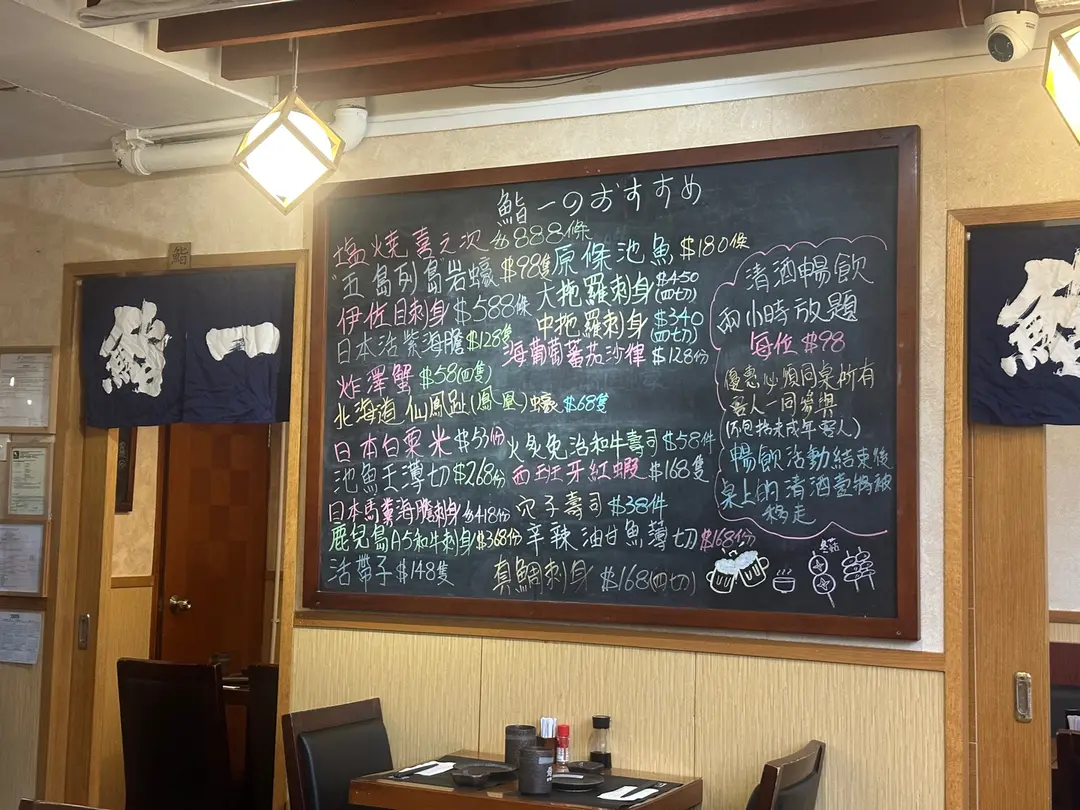 鮨一のおすすめ
塩燒喜之次$888條
五島列島岩蠔$98隻
伊佐目刺身$588條
日本活紫海膽$128隻
炸澤蟹$58(四隻)
北海道仙鳳趾(鳳凰)蠔$68隻
日本白粟米$53份
池魚王薄切$268份
日本馬糞海膽刺身$418份
鹿兒島A5和牛刺身$368份
活帶子$148隻
原條池魚$180條
大拖羅刺身$450(四切)
中拖羅刺身$340(四切)
海葡萄蕃茄沙律$128份
火炙免治和牛壽司$58件
西班牙紅蝦$168隻
穴子壽司$38件
辛辣油甘魚薄切$168份
真鯛刺身$168(四切)
清酒暢飲
兩小時放題
每位$98
優惠必須同桌所有
客人一同參與
(不包括未成年客人)
暢飲活動結束後
桌上的清酒壺將被
移走
冬菇
鮨
鮨一
鮨